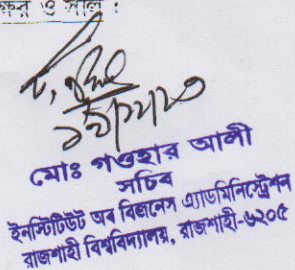 ও সীল :
মোঃ গওহার আলী
সচিব
ইনস্টিটিউট অব বিজনেস এ্যাডমিনিস্ট্রেশন
রাজশাহী বিশ্ববিদ্যালয়, রাজশাহী-৬২০৫